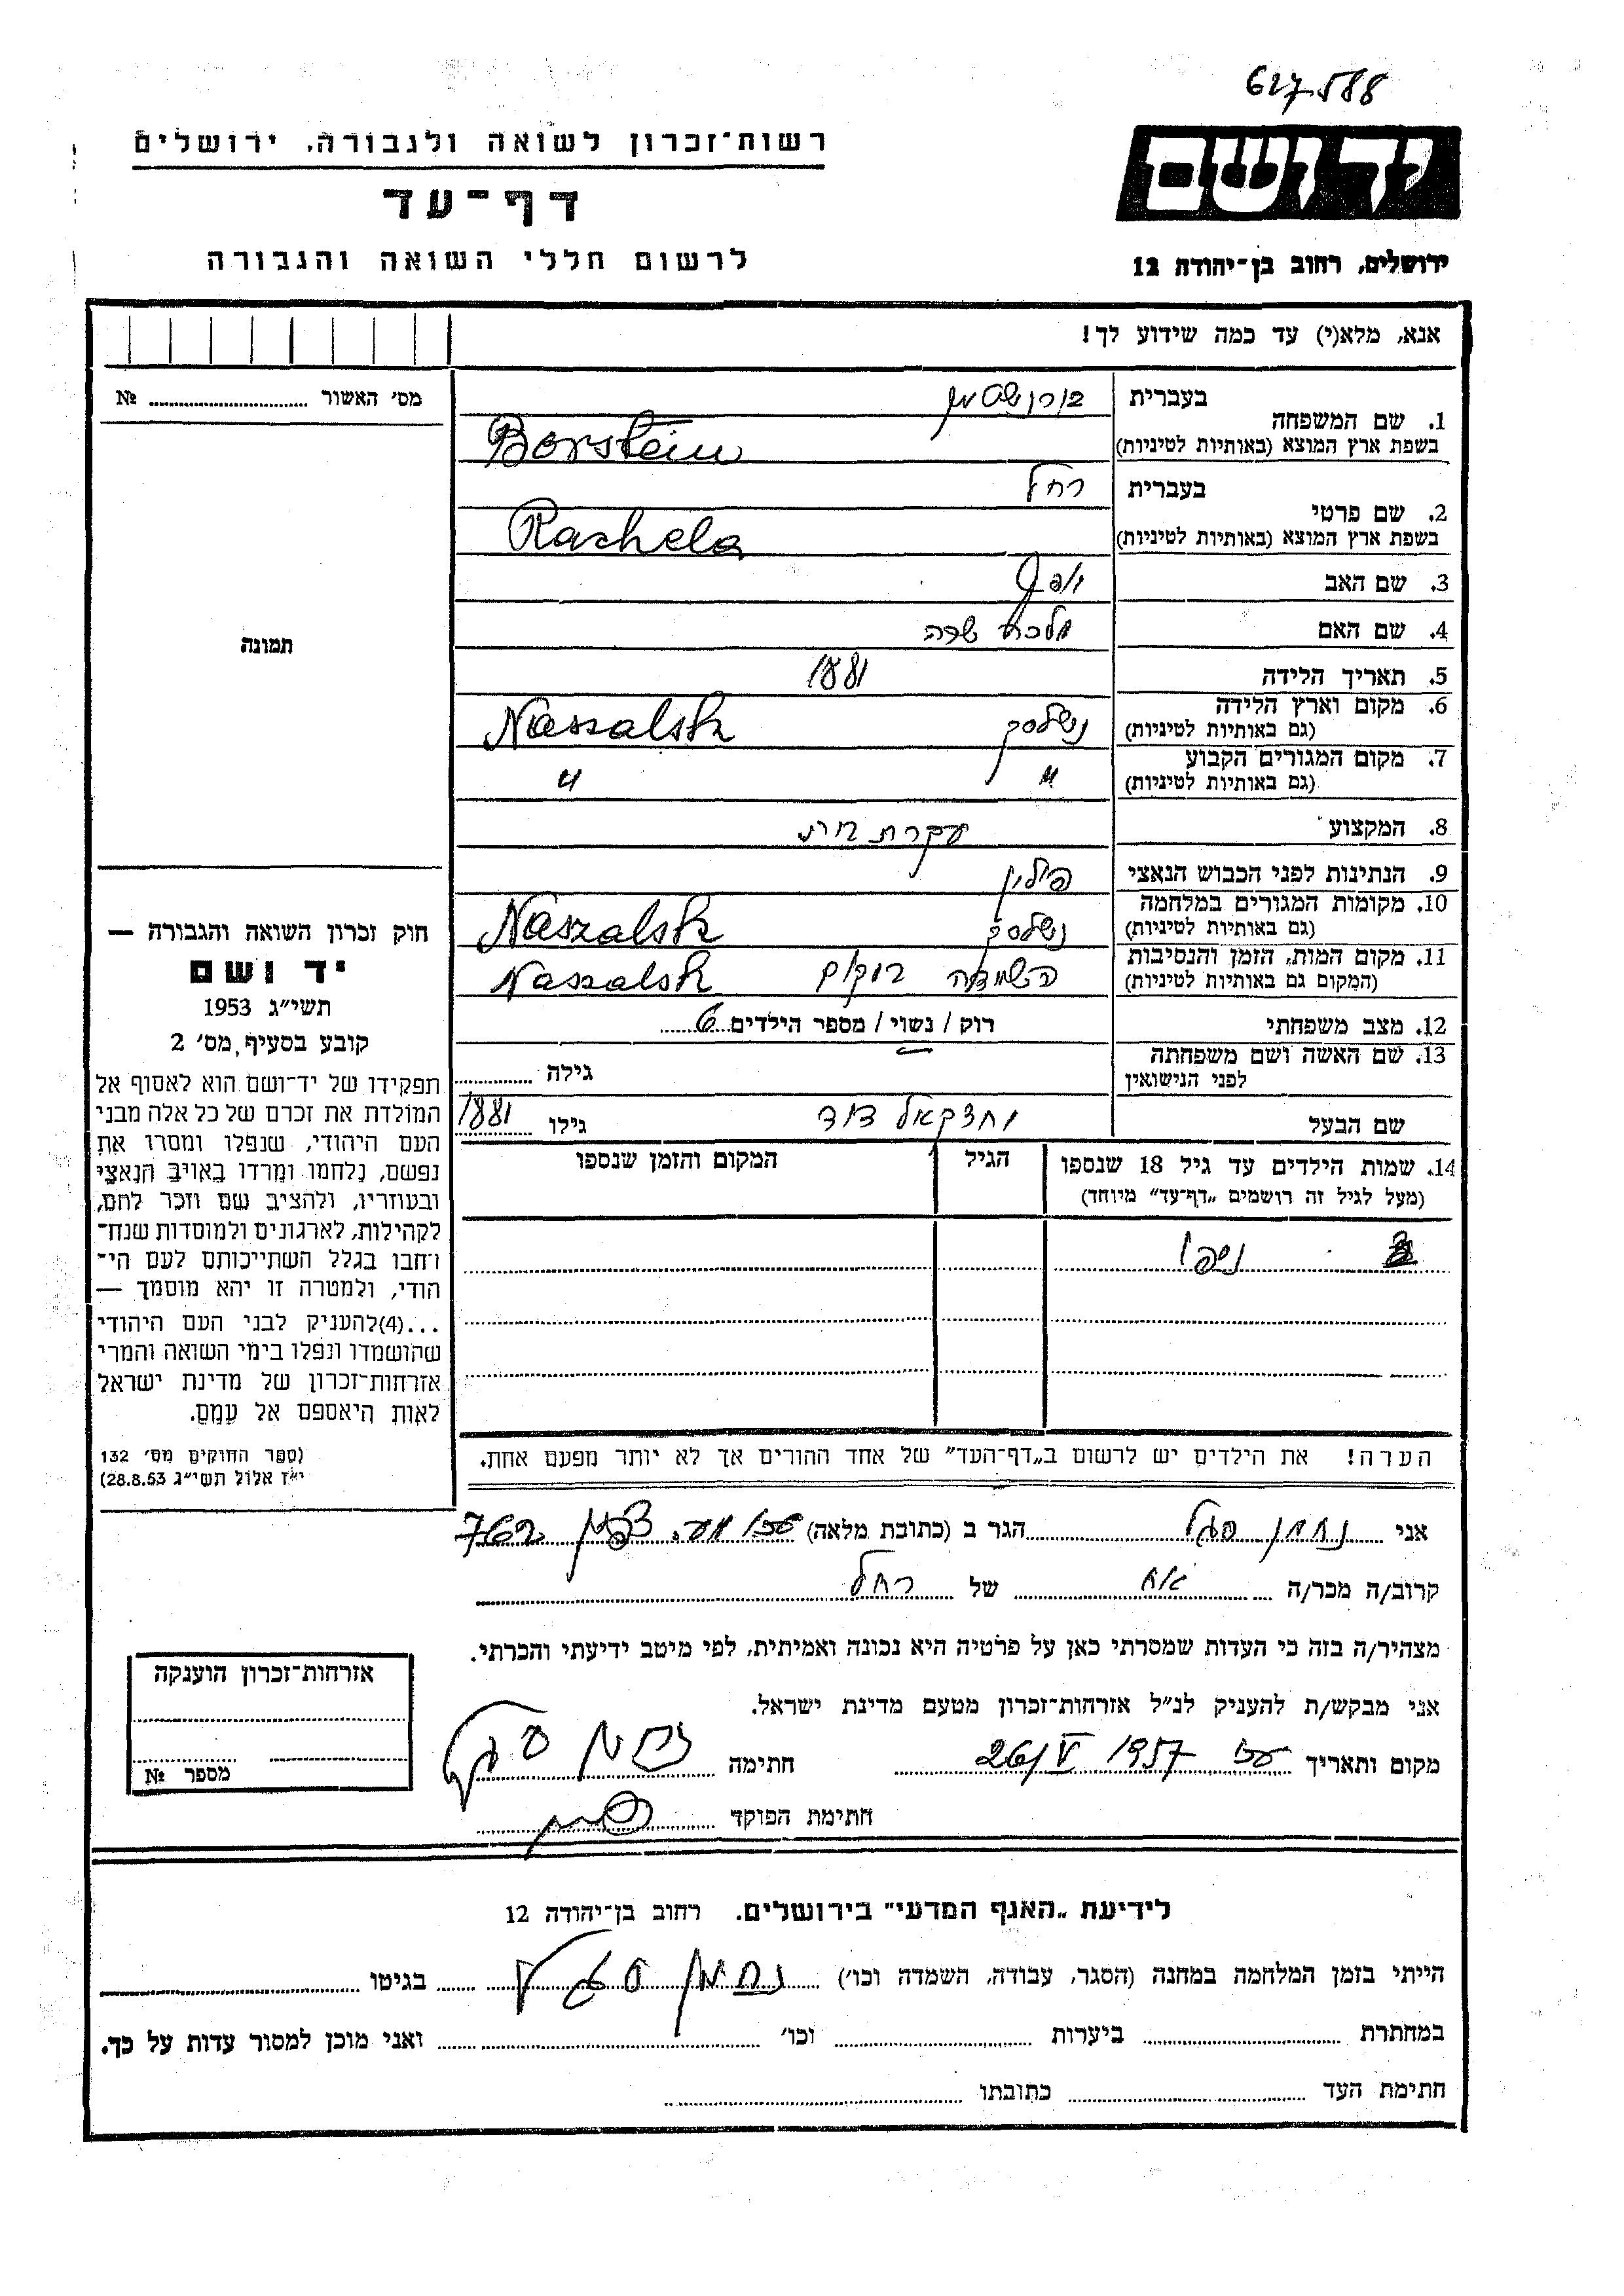 627.588
רשות־זכרון לשואה ולגבורה, ירושלים
יד ושם
דף־עד
לרשום חללי השואה והגבורה
ירושלים, רחוב בן־יהודה 12
אנא, מלא(י) עד כמה שידוע לך!
מס׳ האשור № 
1. שם המשפחה
בעברית
בשפת ארץ המוצא (באותיות לטיניות) Borstein
2. שם פרטי
בעברית רחל
בשפת ארץ המוצא (באותיות לטיניות) Rachela
3. שם האב יוסף
4. שם האם מלכה שרה
5. תאריך הלידה 1881
6. מקום וארץ הלידה נשלסק Naszalsk
(גם באותיות לטיניות)
7. מקום המגורים הקבוע " "
(גם באותיות לטיניות)
8. המקצוע עקרת בית
9. הנתינות לפני הכבוש הנאצי פולין
10. מקומות המגורים במלחמה נשלסק Naszalsk
(גם באותיות לטיניות)
11. מקום המות, הזמן והנסיבות השמדה במקום Naszalsk
(המקום גם באותיות לטיניות)
12. מצב משפחתי רוק / נשוי / מספר הילדים 6
13. שם האשה ושם משפחתה גילה
לפני הנישואין
שם הבעל יחזקאל דוד גילו 1881
14. שמות הילדים עד גיל 18 שנספו הגיל המקום והזמן שנספו
(מעל לגיל זה רושמים „דף־עד” מיוחד)
נספו
הערה! את הילדים יש לרשום ב„דף־העד” של אחד ההורים אך לא יותר מפעם אחת.
תמונה
חוק זכרון השואה והגבורה —
יד ושם
תשי״ג 1953
קובע בסעיף מס׳ 2
תפקידו של יד־ושם הוא לאסוף אל
המולדת את זכרם של כל אלה מבני
העם היהודי, שנפלו ומסרו את
נפשם, נלחמו ומרדו באויב הנאצי
ובעוזריו, ולהציב שם וזכר להם,
לקהילות, לארגונים ולמוסדות שנח־
רחבו בגלל השתייכותם לעם הי־
הודי, ולמטרה זו יהא מוסמך —
...(4)להעניק לבני העם היהודי
שהושמדו ונפלו בימי השואה והמרי
אזרחות־זכרון של מדינת ישראל
לאות היאספם אל עמם.
(ספר החוקים מס׳ 132
י״ז אלול תשי״ג 28.8.53)
אני נחמן סגל הגר ב (כתובת מלאה)
קרוב/ה מכר/ה אח של רחל
מצהיר/ה בזה כי העדות שמסרתי כאן על פרטיה היא נכונה ואמיתית, לפי מיטב ידיעתי והכרתי.
אני מבקש/ת להעניק לנ״ל אזרחות־זכרון מטעם מדינת ישראל.
מקום ותאריך 26/V 1957 חתימה נחמן סגל
חתימת הפוקד
אזרחות־זכרון הוענקה
מספר №
לידיעת „האגף המדעי” בירושלים. רחוב בן־יהודה 12
הייתי בזמן המלחמה במחנה (הסגר, עבודה, השמדה וכו׳) נחמן סגל בגיטו
במחתרת ביערות וכו׳ ואני מוכן למסור עדות על כך.
חתימת העד כתובתו